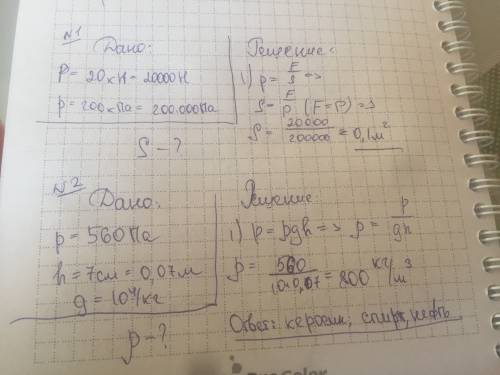 №1
Дано:
P = 20кН = 20000Н
p = 200кПа = 200.000Па
S - ?
Решение:
1) p = F/S =>
S = F/p (F=P) =>
S = 20000/200000 = 0,1м²
№2
Дано:
p = 560Па
h = 7см = 0,07м
g = 10Н/кг
ρ - ?
Решение
1) p = ρgh => ρ = p/gh
ρ = 560/10·0,07 = 800 кг/м³
Ответ: керосин, спирт, нефть